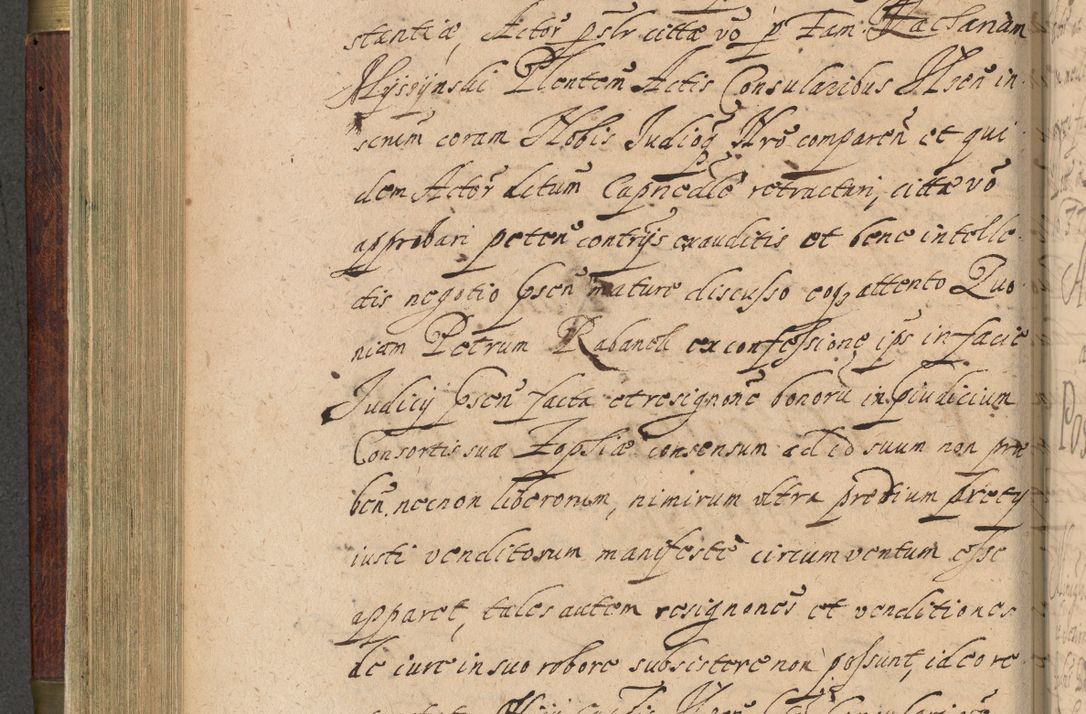 stantiæ, Actor pslr cittæ vo p Fam. Kachanam
Myszynski Plentem Actis Consularibus Nsen in
serum coram Nobis Iudicio Nro comparen et qui
dem Actor dctum retractari, cittæ vo
approbari peten contrys exauditis et bene intelle
ctis negotio psen mature discusso eoq attento Quo
niam Petrum Rabanek ex confessione ips in facie
Iudicij psen facta et resignone bonoru in piudicium
Consortis suæ Zophiæ consensum ad id suum non præ
ben. necnon liberorum, nimirum ultra predium prety
iusti venditorum manifeste circumventum esse
apparet, tales autem resignones et venditiones
de iure in suo robore subsistere non possunt, ideo re